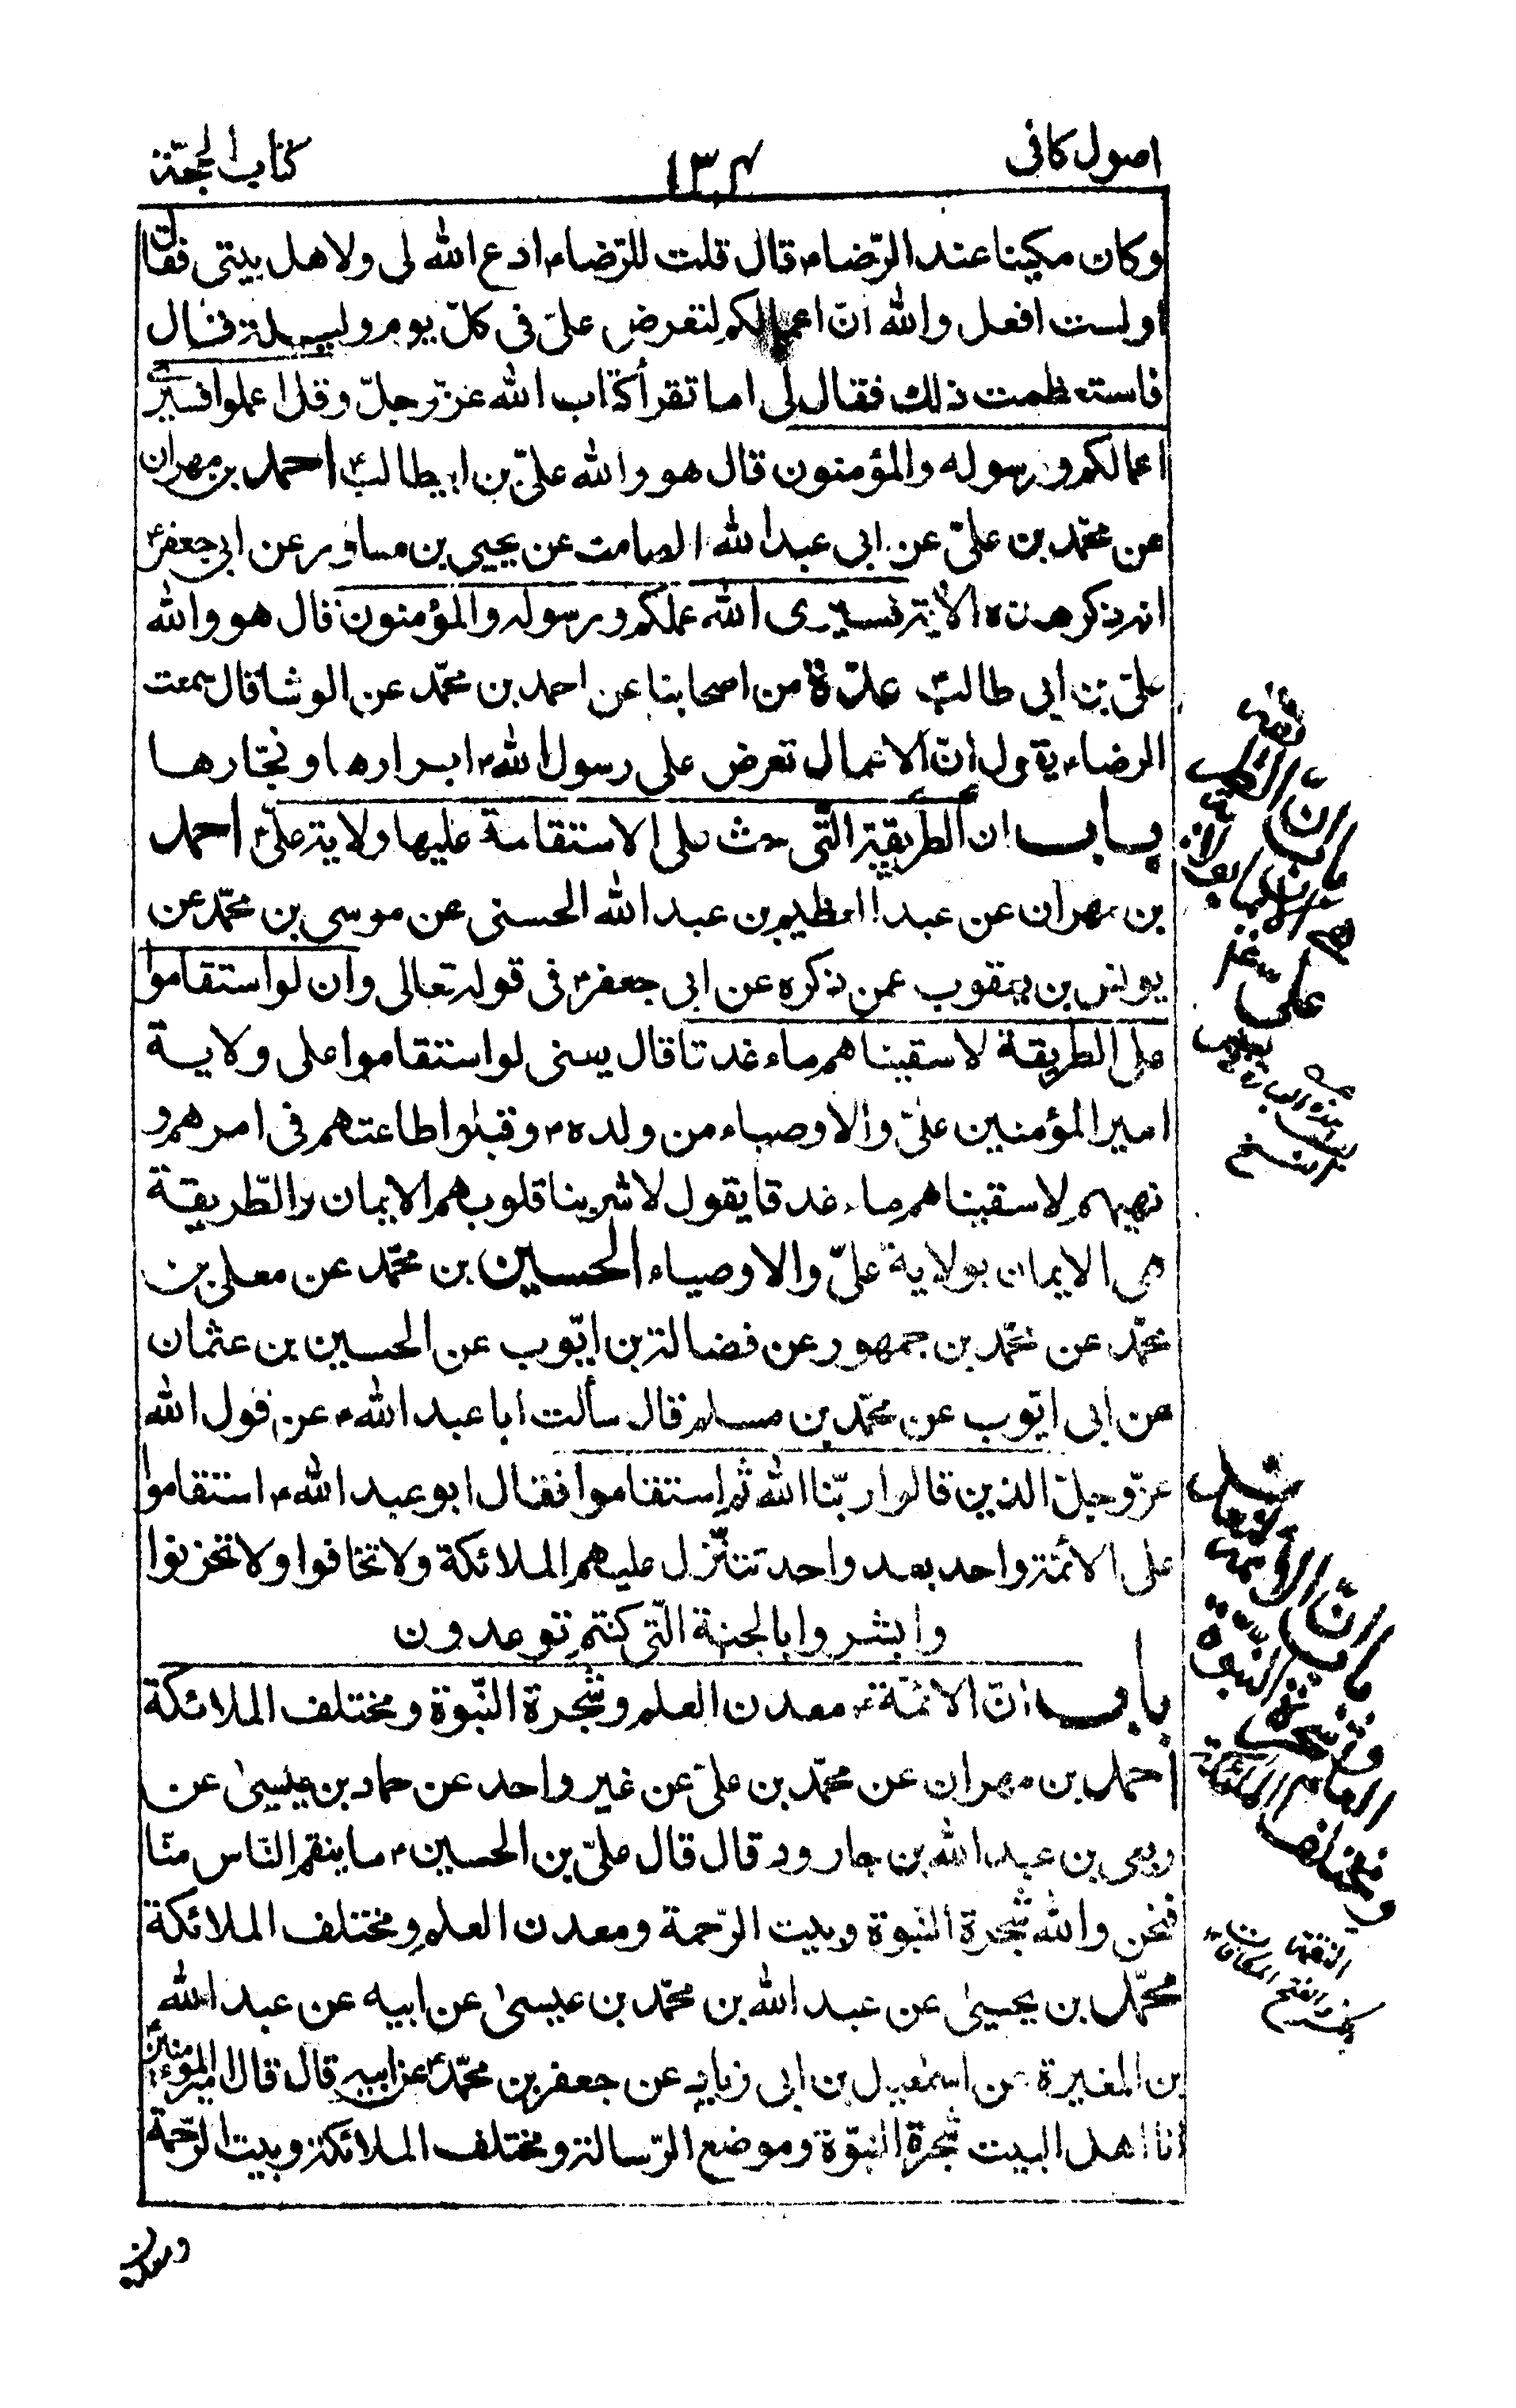 اصول كافى
١٣٤
كتاب الحجّة
وكان مكينا عند الرّضاء قال قلت للرّضاء ادع الله لى ولاهل بيتى فقال
اولست افعل والله انّ اعمالكم لتعرض علىّ فى كلّ يوم وليلة قال
فاستعظمت ذلك فقال لى اما تقرأ كتاب الله عزّ وجلّ وقل اعملوا فسيرى
اعمالكم ورسوله والمؤمنون قال هو والله علىّ بن ابيطالبؑ احمد بن مهران
عن محمّد بن علىّ عن ابى عبد الله الصامت عن يحيى بن مساور عن ابى جعفرؑ
انه ذكر هذه الاية فسيرى الله عملكم ورسوله والمؤمنون قال هو والله
علىّ بن ابى طالبؑ عدّة من اصحابنا عن احمد بن محمّد عن الوشا قال سمعت
الرضاء يقول انّ الاعمال تعرض على رسول اللهؐ ابرارها وفجّارها
باب ان الطريقة الّتى حث على الاستقامة عليها ولاية علىّؑ احمد
بن مهران عن عبد العظيم بن عبد الله الحسنى عن موسى بن محمّد عن
يونس بن يعقوب عمن ذكره عن ابى جعفرؑ فى قوله تعالى وان لو استقاموا
على الطريقة لاسقيناهم ماء غدقا قال يعنى لو استقاموا على ولاية
امير المؤمنين علىّ والاوصياء من ولدهؑ وقبلوا طاعتهم فى امرهم و
نهيهم لاسقيناهم ماء غدقا يقول لاشربنا قلوبهم الايمان والطّريقة
هى الايمان بولاية علىّ والاوصياء الحسين بن محمّد عن معلى بن
محمّد عن محمّد بن جمهور عن فضالة بن ايّوب عن الحسين بن عثمان
عن ابى ايّوب عن محمّد بن مسلم قال سألت ابا عبد اللهؑ عن قول الله
عزّ وجلّ الذين قالوا ربّنا الله ثم استقاموا فقال ابو عبد اللهؑ استقاموا
على الائمّة واحد بعد واحد تتنزّل عليهم الملائكة ولا تخافوا ولا تحزنوا
وابشروا بالجنة الّتى كنتم توعدون
باب انّ الائمّةؑ معدن العلم وشجرة النّبوة ومختلف الملائكة
احمد بن مهران عن محمّد بن علىّ عن غير واحد عن حماد بن عيسىٰ عن
ربعى بن عبد الله بن جارود قال قال علىّ بن الحسينؑ ما ينقم النّاس منّا
فنحن والله شجرة النّبوة وبيت الرّحمة ومعدن العلم ومختلف الملائكة
محمّد بن يحيىٰ عن عبد الله بن محمّد بن عيسىٰ عن ابيه عن عبد الله
بن المغيرة عن اسمعيل بن ابى زياد عن جعفر بن محمّدؑ عن ابيه قال قال امير المؤمنينؑ
انا اهل البيت شجرة النّبوّة وموضع الرّسالة ومختلف الملائكة وبيت الرّحمة
باب انّ
باب انّ
وشجرة النّبوّة
ومختلف الملائكة
ومعدن